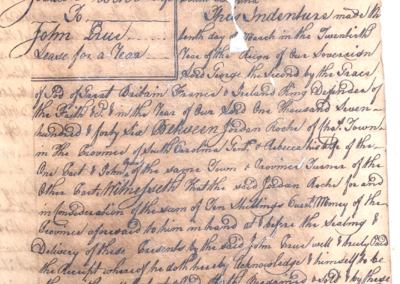 To
John Rue
Lease for a Year
This Indenture made the
tenth day of March in the Twentieth
Year of the Reign of our Sovereign
Lord George the Second by the Grace
of God of Great Britain France & Ireland King Defender of
the Faith &c & in the Year of Our Lord One Thousand Seven
hundred & forty Six Between Jordan Roche of Town
in The Province of South Carolina Gent. & Rebecca his Wife of the
One Part & John of the same Town & Province Turner of the
Other Part, Witnesseth that the said Jordan Roche for and
in Consideration of the sum of Ten Shillings Curr.t Money of the
Province aforesaid to him in hand at & before the Sealing &
Delivery of these Presents by the said John well & truly Paid
the Receipt whereof he doth hereby Acknowledge & himself to be
Bargained & Sold & by these